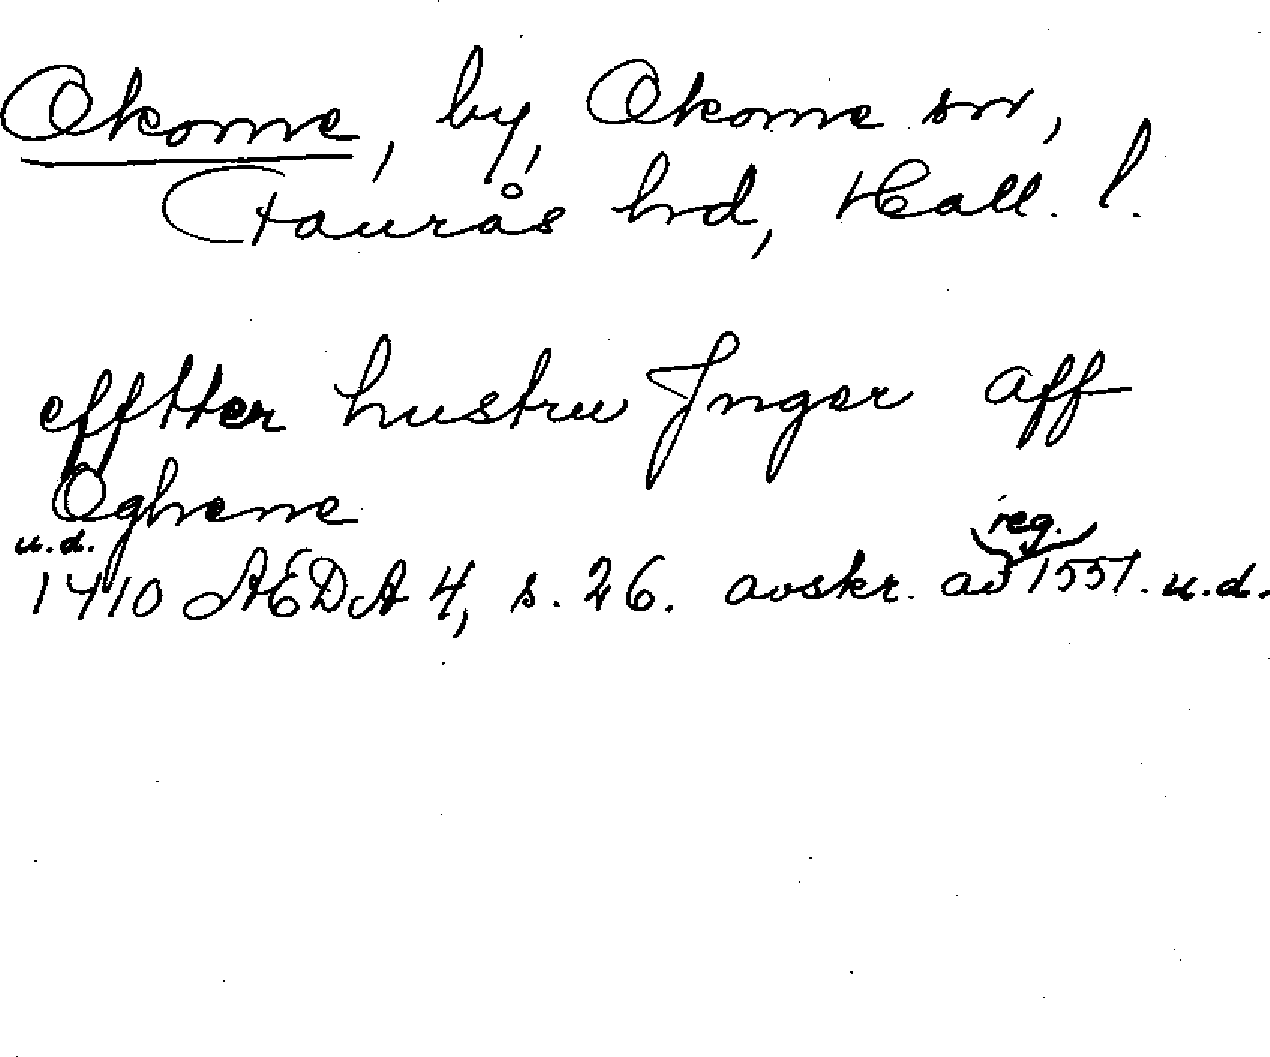 Okome, by, Okome sn,
Faurås hrd, Hall. l.
efftter hustru Jnger aff
Ogheme
u.d. reg.
1410 ÆDA 4, s. 26. avskr. av 1551. u.d.